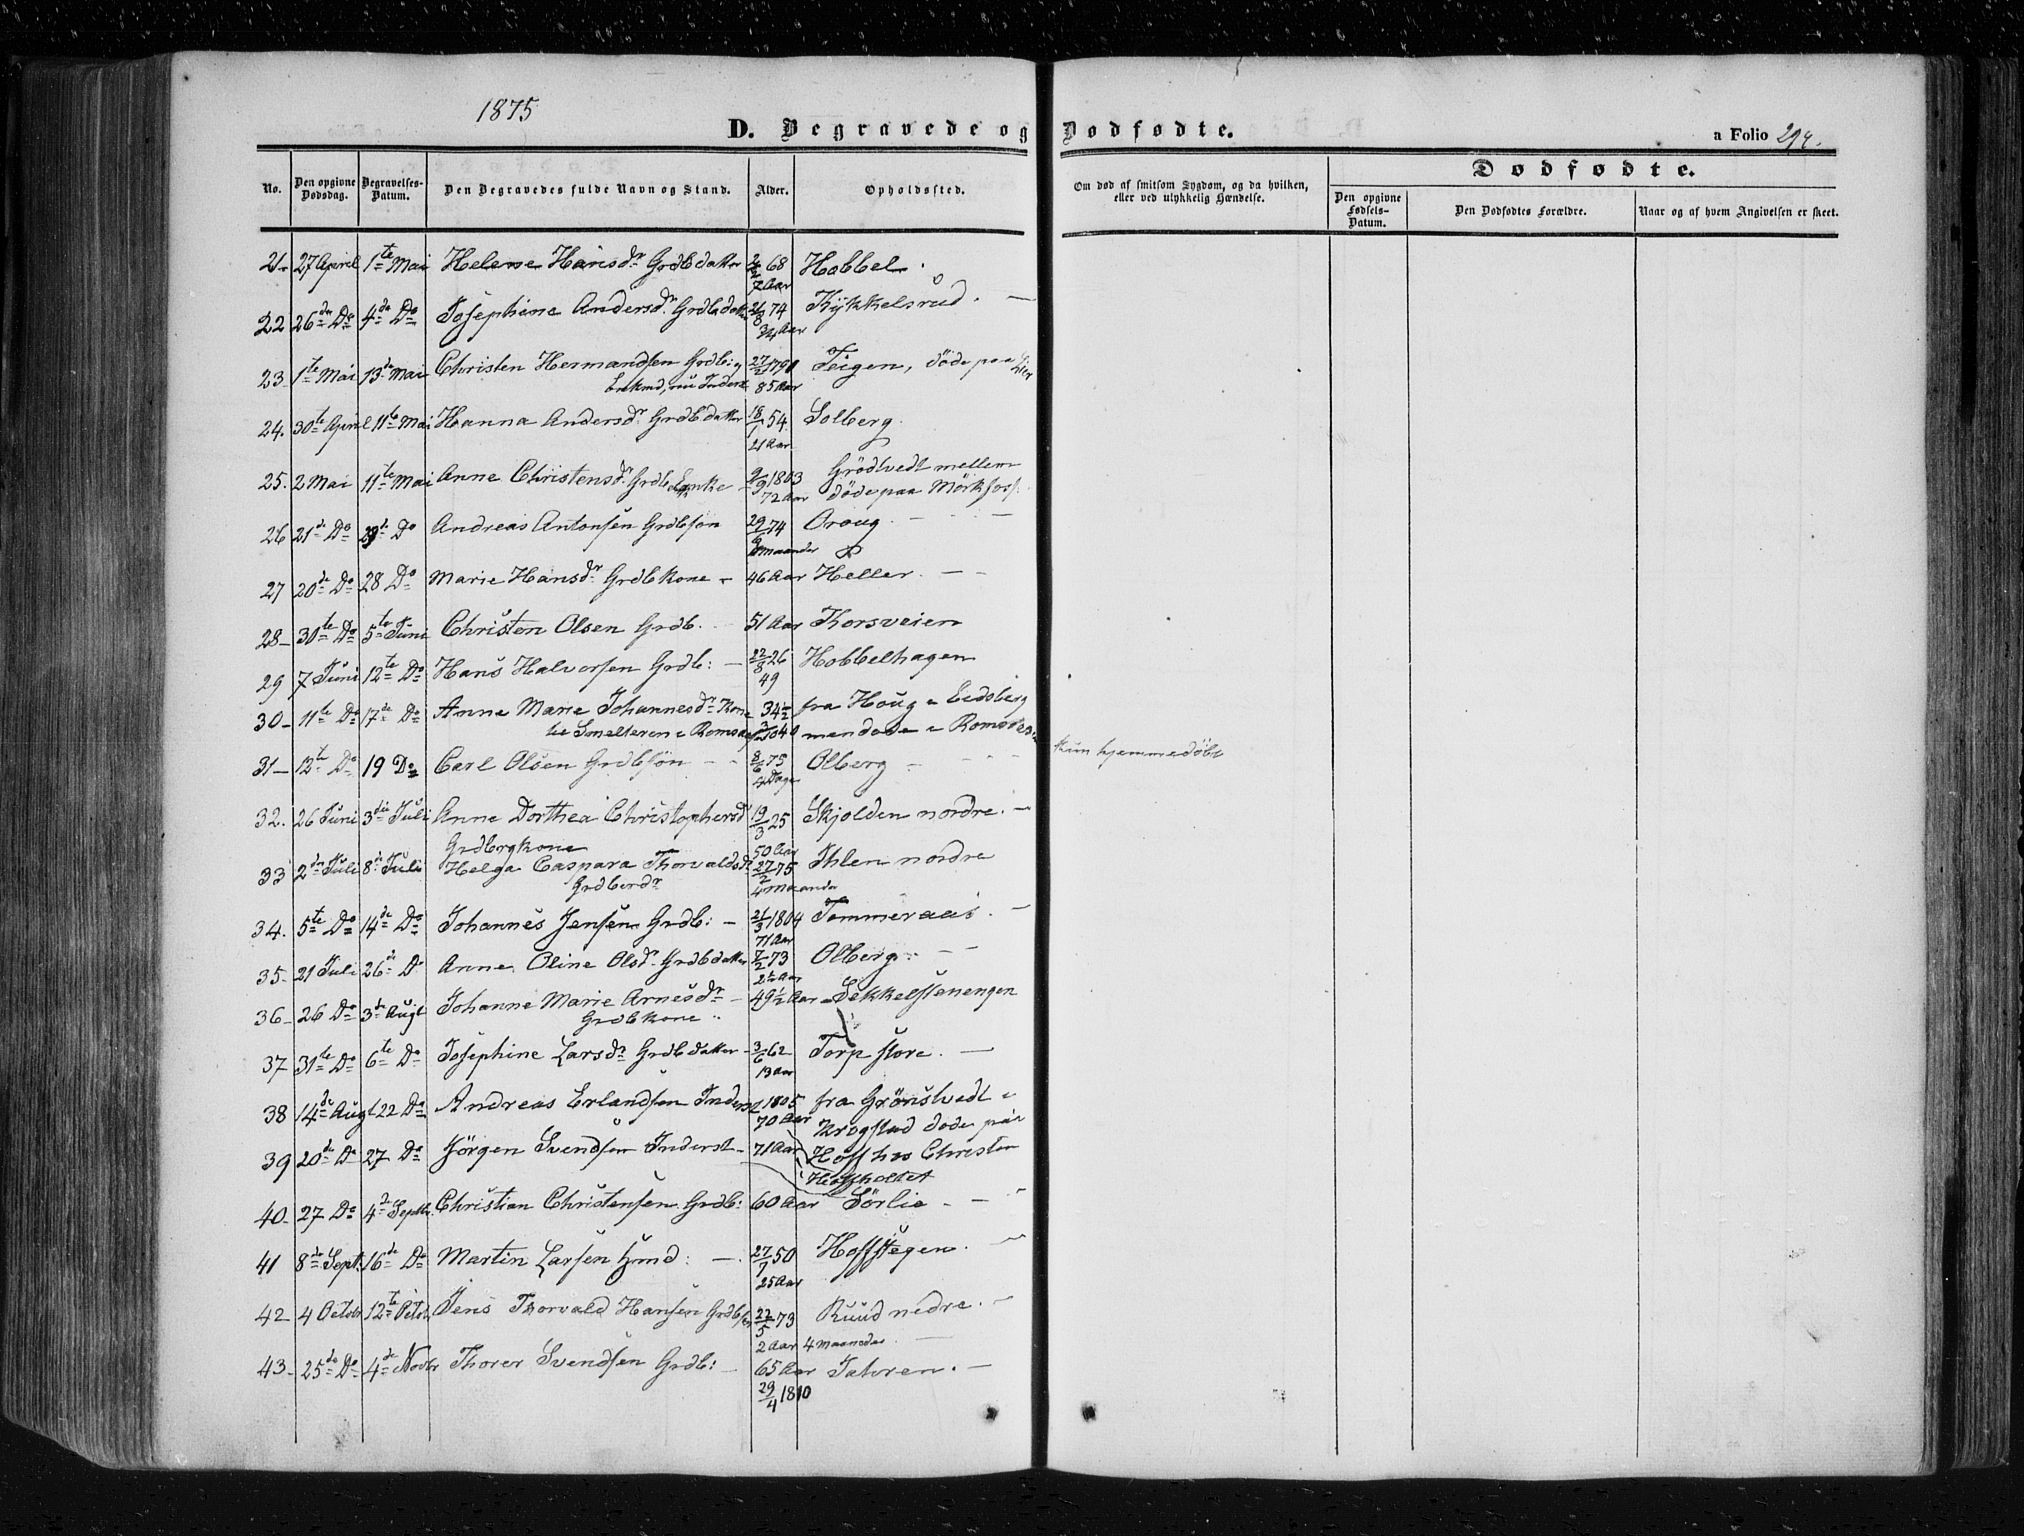 1875
D. Begravede og Dødfødte.
a Folio 294.
No.
Den opgivne Dødsdag.
Begravelses-Datum.
Den Begravedes fulde Navn og Stand.
Alder.
Opholdssted.
Om død af smitsom Sygdom, og da hvilken, eller ved ulykkelig Hændelse.
Dødfødte.
Den opgivne Fødsels-Datum.
Den Dødfødtes Forældre.
Naar og af hvem Angivelsen er skeet.
21. 27 April 1te Mai Helene Hansdr Grdbdatter 68 Hobbel.
7 Aar
22 26de Do 4de Do Josephine Andersdr. Grdbdatter 74 Kykkelsrud.
3/4 Aar
23 1te Mai 13de Mai Christen Hermandsen Grdb: 1790 Teigen, døde paa
Enkmd, nu Inderst 85 Aar
24. 30te April 11te Mai Hanna Andersdr Grdbdatter 18/1 54. Solberg.
21 Aar
25. 2 Mai 11te Mai Anne Christensdr Grdb Enke 9/9 1803 Grödtvedt mellem
72 Aar døde paa Mörkfoss
26 21de Do 29de Do Andreas Antonsen Grdbsøn 74 Oraug
maaneder
27 20de Do 28 Do Marie Hansdr. Grdbkone 46 Aar Heller.
28 30te Do 5te Juni Christen Olsen Grdb. 51 Aar Thorsveien
29 7 Juni 12te Do Hans Halvorsen Grdb: 22/8 26 Hobbelhagen
49
30 11te Do 17de Do Anne Marie Johannesdr Kone 34 fra Houg i Eidsberg
til Smelteren i men døde i
31 12te Do 19 Do Carl Olsen Grdbsøn 8/6 75 Olberg kun hjemmedøbt
4 Dage
32. 26 Juni 3die Juli Anne Dorthea Christophersd 19/3 25 Skjolden nordre.
Grdbrgkone 50 Aar
33 2den Juli 8de Juli Helga Caspara Thorvaldsdr 27/2 75 Ihlen nordre
Grdberdr 4 maander
34. 5te Do 14de Do Johannes Jensen Grdb: 21/3 1804 Tømmeraas.
71 Aar
35. 21 Juli 26de Do Anne Oline Olsdr. Grdbdatter 73 Olberg.
2 1/2 Aar
36 26 Do 3de Augt Johanne Marie Arnesdr 49 1/2 Aar Sekkelstenengen
Grdbkone
37 31te Do 6te Do Josephine Larsdr Grdbdatter 3/6 62 Torp store.
13 Aar
38 14de Augt 22 Do Andreas Erlandsen Inderst 1805 fra Grönslvedt i
70 Aar Krogstad døde paa
39 20de Do 27 Do Jörgen Svendsen Inderst 71 Aar Hoff hos Christen
Hoffholtet
40 27 Do 4de Septbr. Christian Christensen Grdb: 60 Aar Sørlie
41 8de Sept. 16de Do Martin Larsen Hmd: 27/7 50 Hoffstegen.
25 Aar
42 4 Octobr 12te Octobr Jens Thorvald Hansen Grdbsøn 22/5 73 Ruud nedre.
2 Aar 4 maaneder
43 25de Do 4de Novbr Thorer Svendsen Grdb: 65 Aar Tahren.
29/4 1810